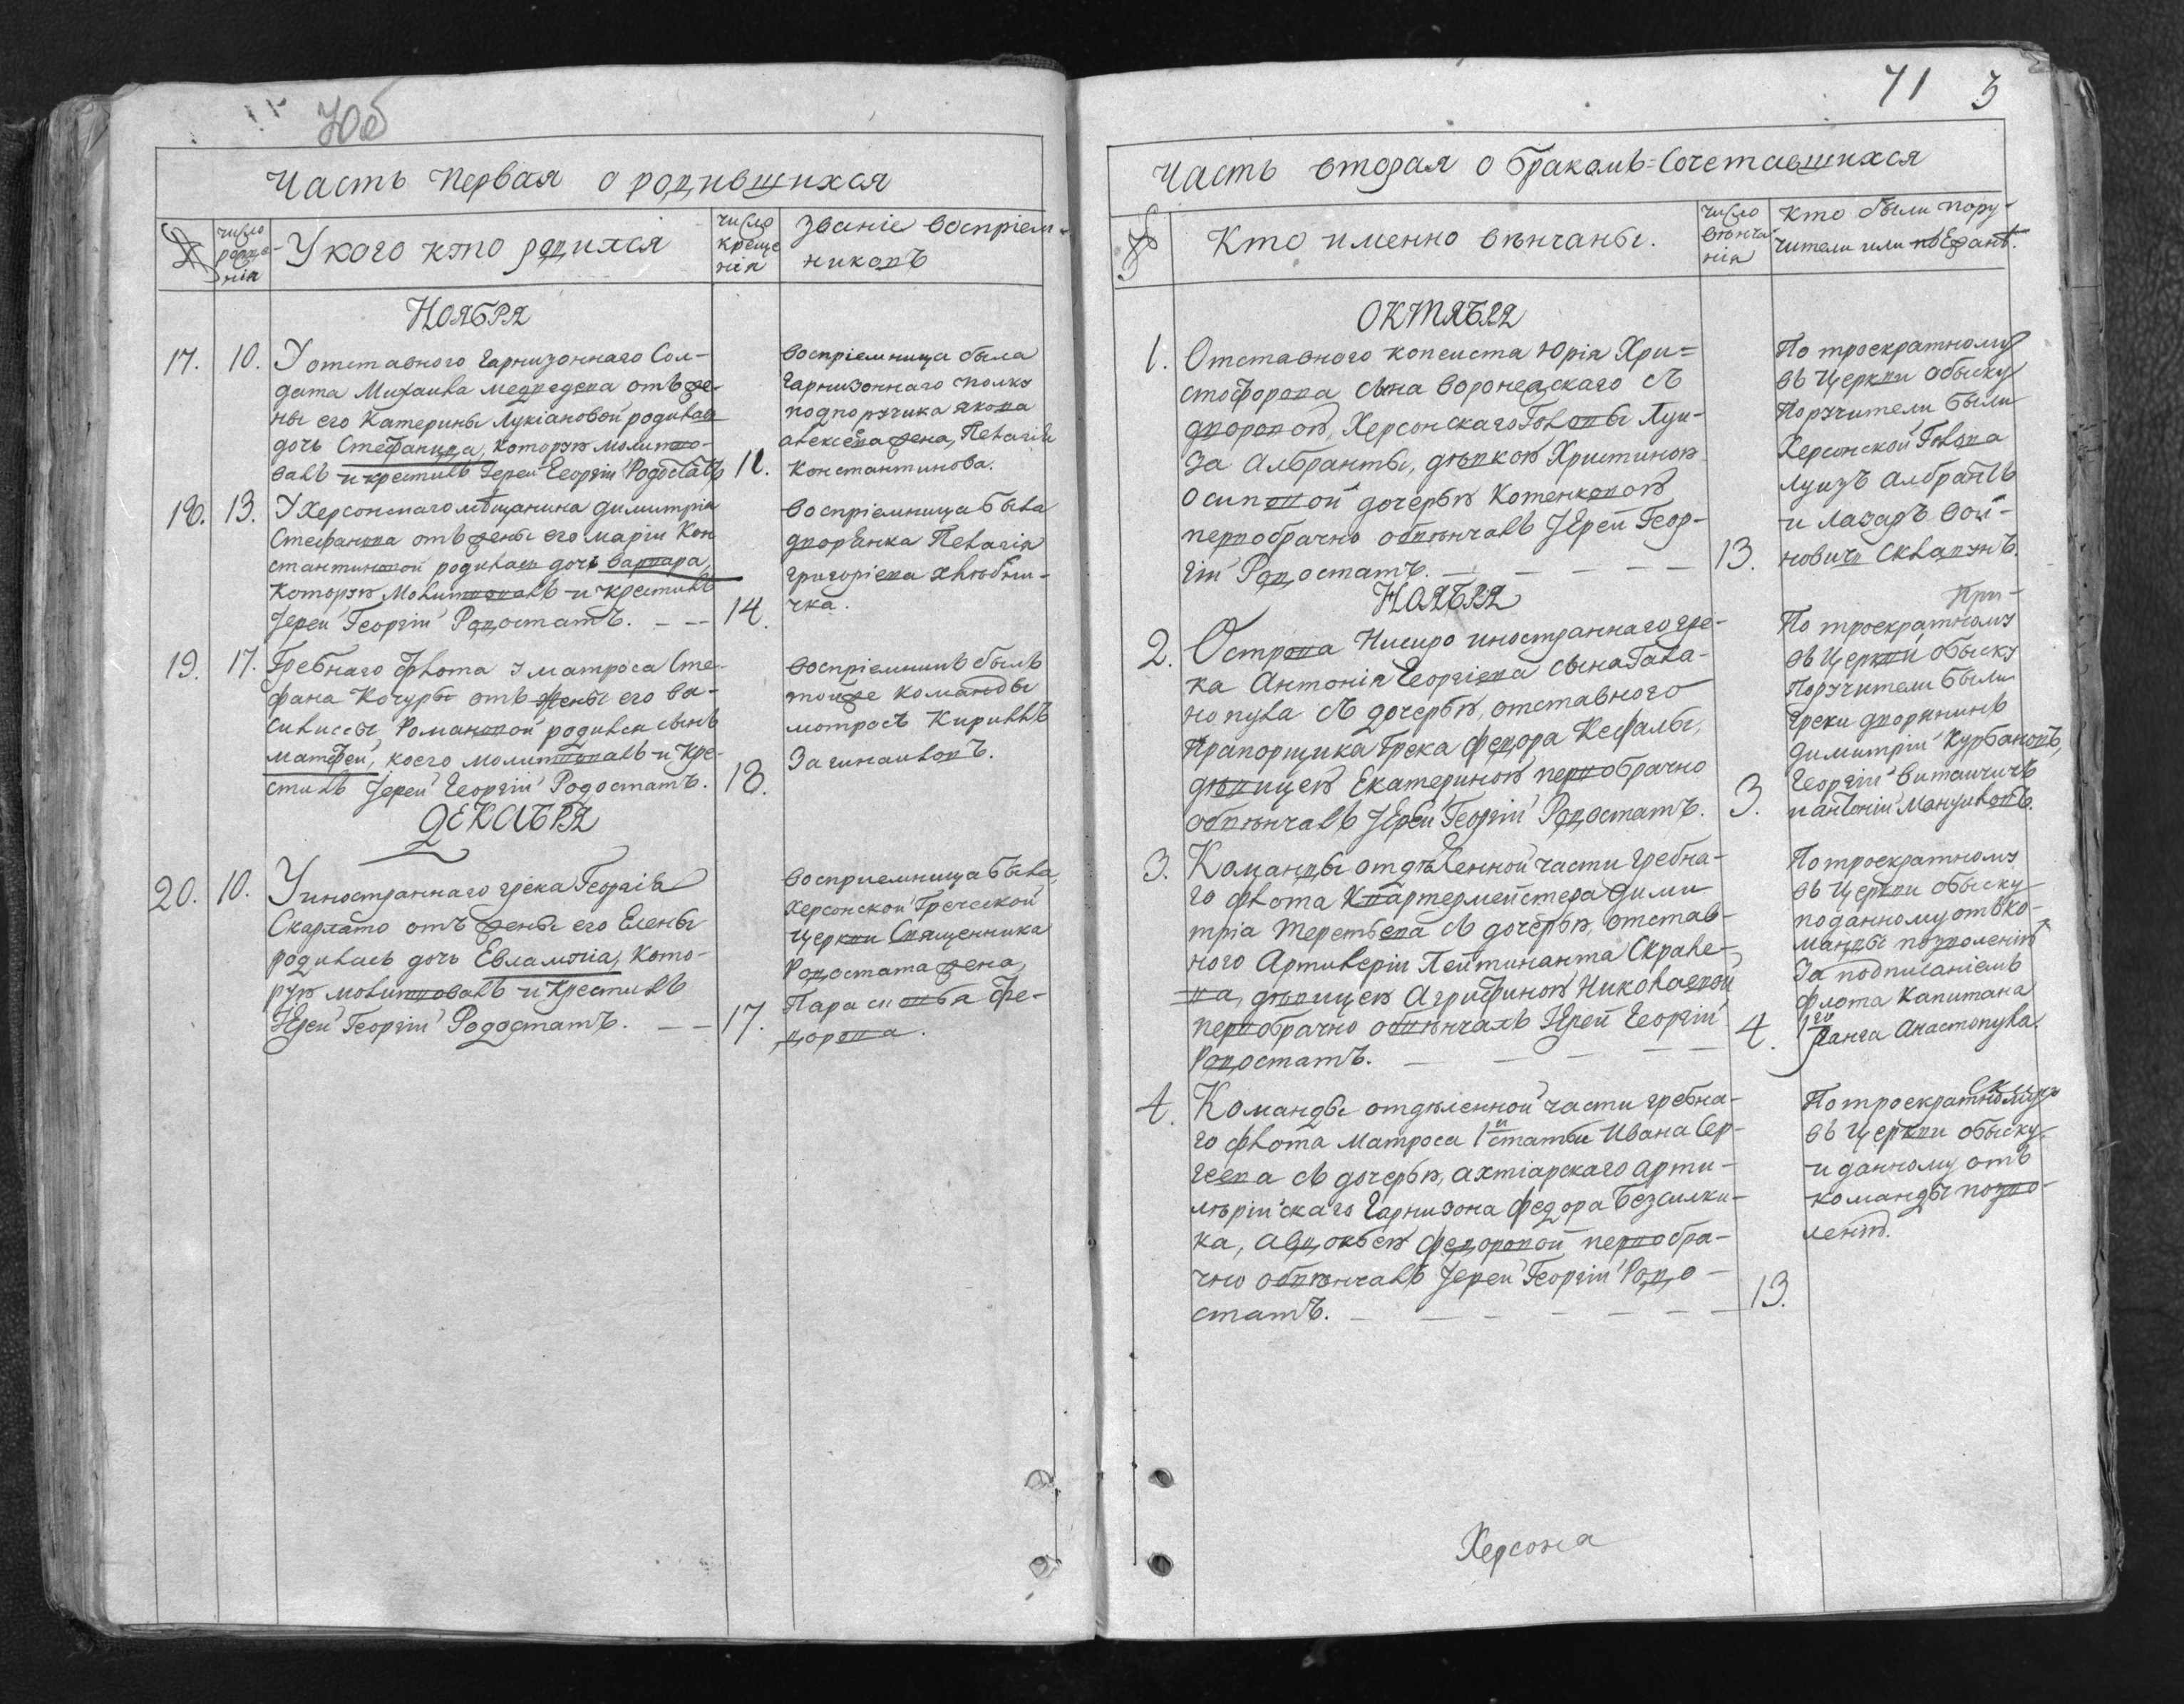 70об
Часть Первая о родившихся
№
число рожде-
нія
У кого кто родился
число
креще
нія
Званіе воспріем-
никовъ
НОЯБРЯ
17. 10. У отставного Гарнизоннаго Сол-
дата Михаила Медведева отъ же-
ны его Катерины Лукіановой родилась
дочь Стефанида, которую молитво-
валъ и крестилъ Іерей Георгій Родостатъ 12.
воспріемница была
Гарнизоннаго полку
подпоручика Якова
Алексеева жена, Пелагія
Константинова.
18. 13. У Херсонскаго мѣщанина Димитрія
Стефанова отъ жены его Маріи Кон
стантиновой родилась дочь Варвара,
которую Молитвовалъ и крестилъ
Іерей Георгій Родостатъ. — — 14.
воспріемница была
дворянка Пелагія
Григоріева Хлѣбни-
чка.
19. 17. Гребнаго Флота у матроса Сте-
фана Кочуры отъ жены его Ва-
силиссы, Романовой родился сынъ
Матфей, коего молитвовалъ и кре-
стилъ Іерей Георгій Родостатъ. 18.
воспріемникъ былъ
тойже команды
матросъ Кириллъ
Загинайловъ.
ДЕКАБРЯ
20. 10. У иностраннаго грека Георгія
Скарлато отъ жены его Елены
родилась дочь Евлампіа, кото-
рую молитвовалъ и крестилъ
Іерей Георгій Родостатъ. — — 17.
восприемница была,
Херсонской Греческой
Церкви Священника
Родостата жена,
Парасковья Фе-
дорова.
71 3
Часть вторая о бракомъ-Сочетавшихся
№
Кто именно вѣнчаны.
число
вѣнча
нія
Кто были пору-
чители или поезжанѣ.
ОКТЯБРЯ
1. Отставного копеиста Юріа Хри=
стофорова сына Воронежскаго съ
дворовой, Херсонскаго Головы Луи-
за Албранты, дѣвкою Христиною
Осиповой дочерью Котенковою
первобрачно обвѣнчалъ Іерей Геор-
гій Родостатъ. — — — — — 13.
По троекратному
въ Церкви обыску
Поручители были
Херсонской Голова
Луизъ Албрантъ
и Лазаръ Вой-
новичъ Скваронъ.
НОЯБРЯ
При-
2. Острова Нисиро иностраннаго гре-
ка Антонія Георгіева сына Гала-
нопула съ дочерью, отставного
Прапорщика Грека Федора Кефалы,
дѣвицею Екатериною первобрачно
обвѣнчалъ Іерей Георгій Родостатъ. 3.
По троекратному
въ Церкви обыску
Поручители были
Греки дворянинъ
Димитрій Курбановъ,
Георгій Виталичичъ
и Антоній Мануиловъ.
3. Команды отдѣленной части гребна-
го флота Квартермейстера Дими
тріа Терентьева съ дочерью, отстав-
ного Артилеріи Лейтинанта Скрале-
ва, дѣвицею Агрифиною Николаевой
первобрачно обвѣнчалъ Іерей Георгій
Родостатъ. — — — — 4.
По троекратному
въ Церкви обыску
по данному отъ ко-
манды позволенію
За подписаніемъ
Флота Капитана
1го Ранга Анастопула.
4. Команды отдѣленной части гребна-
го флота Матроса 1й статьи Ивана Сер-
геева съ дочерью, ахтіарскаго арти-
лѣрійскаго Гарнизона Федора Безсилки-
ка, Авдокьею Федоровой первобра-
чно обвѣнчалъ Іерей Георгій Родо-
статъ. — — — — — — 13.
По троекратному
въ Церкви обыску
и данному отъ
команды позво-
ленію.
Херсона